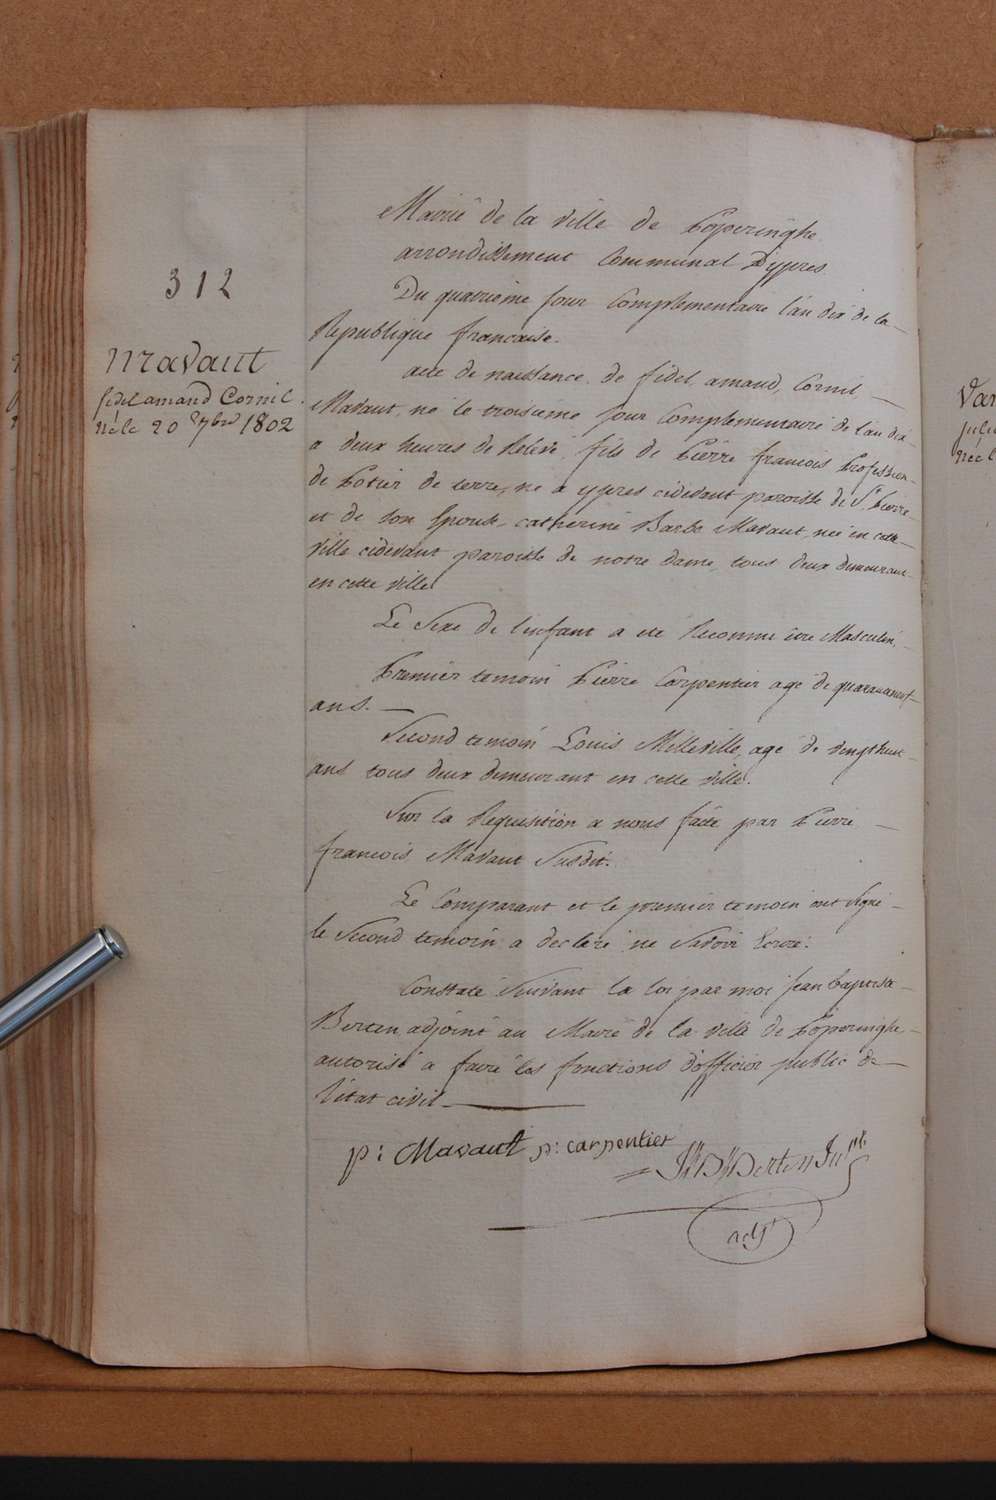 312
Mavaut
fidel amand Cornil.
né le 20 7bre 1802
Mairie de la ville de Poperinghe
arrondissement Communal D'ypres
Du quatrieme jour Complementaire l'an dix de la
Republique francaise.
acte de naissance de fidel, amand, Cornil,
Mavaut, né le troisieme jour Complementaire de l'an dix
a deux heures de Relevé, fils de Pierre francois Profession
de Potier de terre, né a ypres cidevant paroisse de St Pierre
et de son Epouse, catherine Barbe Mavaut, née en cette
ville cidevant paroisse de notre dame, tous deux demeurant
en cette ville
Le Sexe de l'enfant a eté Reconnu être Masculin,
Premier temoin Pierre Carpentier agé de quaranteneuf
ans.
Second temoin Louis Milleville, agé de vingthuit
ans tous deux demeurant en cette ville.
Sur la Requisition a nous faite par Pierre
francois Mavaut Susdit.
Le Comparant et le premier temoin ont signé
le Second temoin a declaré ne Savoir Ecrire.
Constaté Suivant la loi par moi jean baptiste
Berten adjoint au Maire de la ville de Poperinghe
autorisé a faire les fonctions d'officier public de
l'état civil
p: Mavaut p: carpentier
Berten
adjt
Van
juli
née l